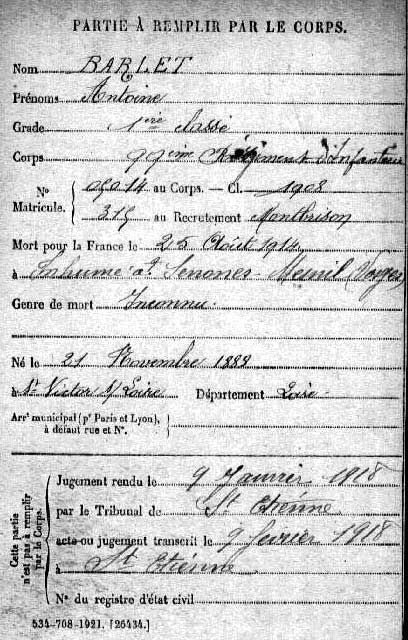 PARTIE À REMPLIR PAR LE CORPS.
Nom BARLET
Prénoms Antoine
Grade 1ère classe
Corps 99ème Régiment d'Infanterie
Nº Matricule. 09014 au Corps. — Cl. 1908
315 au Recrutement Montbrison
Mort pour la France le 25 Août 1914
à Inhumé at. Senones - Mesnil (Vosges)
Genre de mort Inconnu.
Né le 21 Novembre 1888
à St Victor s/ Loire Département Loire
Arrt municipal (pr Paris et Lyon),
à défaut rue et Nº.
Cette partie n'est pas à remplir par le Corps.
Jugement rendu le 9 Janvier 1918
par le Tribunal de St Etienne
acte ou jugement transcrit le 9 février 1918
à St Etienne
Nº du registre d'état civil
534-708-1921. [26434.]